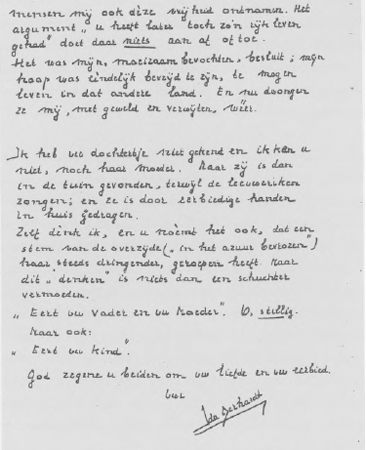 mensen mij ook deze vrijheid ontnamen. Het
argument „ u heeft later toch zo'n rijk leven
gehad" doet daar niets aan af of toe.
Het was mijn, moeizaam bevochten, besluit; mijn
hoop was eindelijk bevrijd te zijn, te mogen
leven in dat andere land. En nu dwongen
ze mij, met geweld en verwijten, wéér.
Ik heb uw dochtertje niet gekend en ik kèn u
niet, noch haar moeder. Maar zij is dan
in de tuin gevonden, terwijl de leeuweriken
zongen; en ze is door eerbiedige handen
in huis gedragen.
Zelf dènk ik, en u noèmt het ook, dat een
stem van de overzijde („ in het azuur bevrozen")
haar steeds dringender, geroepen heeft. Maar
dit „denken" is niets dan een schuchter
vermoeden.
„ Eert uw Vader en uw Moeder". O, stellig.
Maar ook:
„ Eert uw kind".
God zegene u beiden om uw liefde en uw eerbied.
Uw
Ida Gerhardt